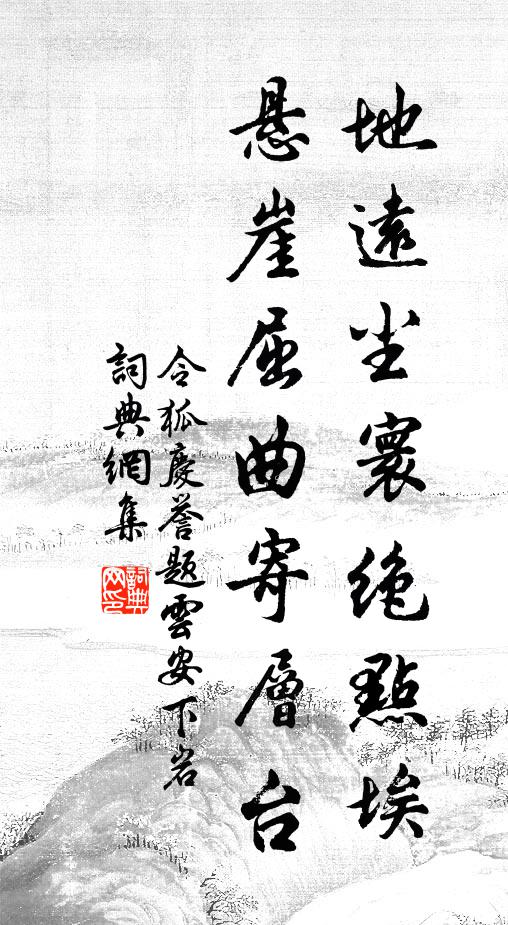 地遠尘寰绝點埃
悬崖屈曲寄層台
令狐慶誉題雲安下岩
詞典網集
詞典网印